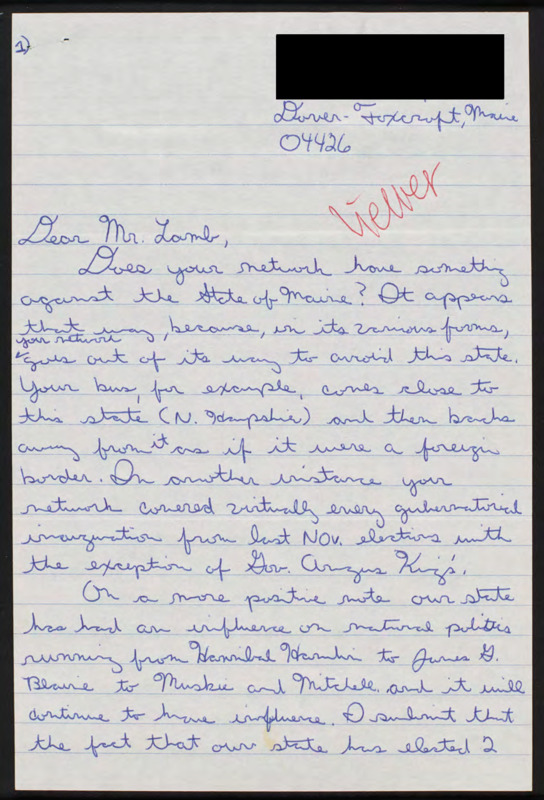 1)
Dover-Foxcroft, Maine
04426
Viewer
Dear Mr. Lamb,
Does your network have somethig
against the State of Maine? It appears
that way, because, in its various forms,
your network
goes out of its way to avoid this state.
Your bus, for example, comes close to
this state (N. Hampshire) and then backs
away from it as if it were a foreign
border. In another instance your
network covered virtually every gubernatorial
inauguration from last Nov. elections with
the exception of Gov. Angus King's.
On a more positive note our state
has had an influence on national politics
running from Hannibal Hamlin to James G.
Blaine to Muskie and Mitchell and it will
continue to have influence. I submit that
the fact that our state has elected 2